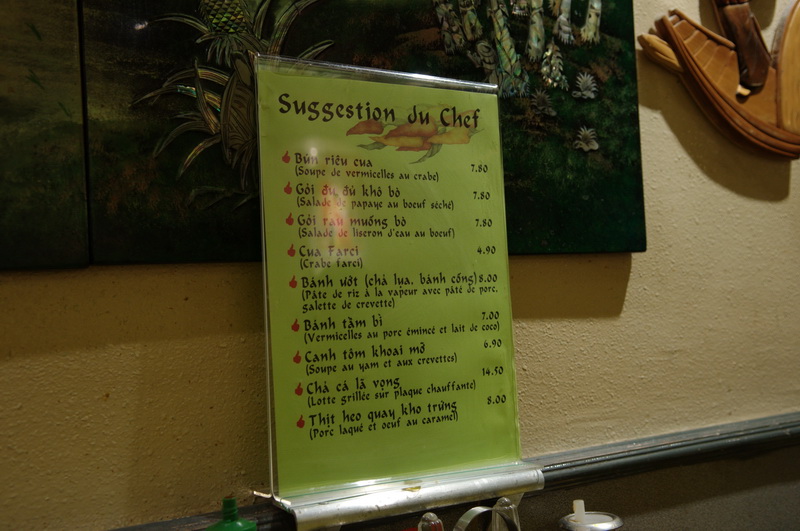 Suggestion du Chef
Bún riêu cua 7.80
(Soupe de vermicelles au crabe)
Gỏi đu đủ khô bò 7.80
(Salade de papaye au boeuf séché)
Gỏi rau muống bò 7.80
(Salade de liseron d'eau au boeuf)
Cua Farci 4.90
(Crabe farci)
Bánh ướt (chả lụa, bánh cống) 8.00
(Pâte de riz à la vapeur avec pâté de porc,
galette de crevette)
Bánh tằm bì 7.00
(Vermicelles au porc émincé et lait de coco)
Canh tôm khoai mỡ 6.90
(Soupe au yam et aux crevettes)
Chả cá lã vọng 14.50
(Lotte grillée sur plaque chauffante)
Thịt heo quay kho trứng 8.00
(Porc laqué et oeuf au caramel)